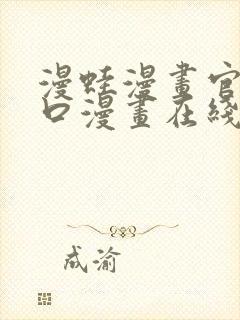 漫蛙漫畫官
口漫畫在綫
成渝